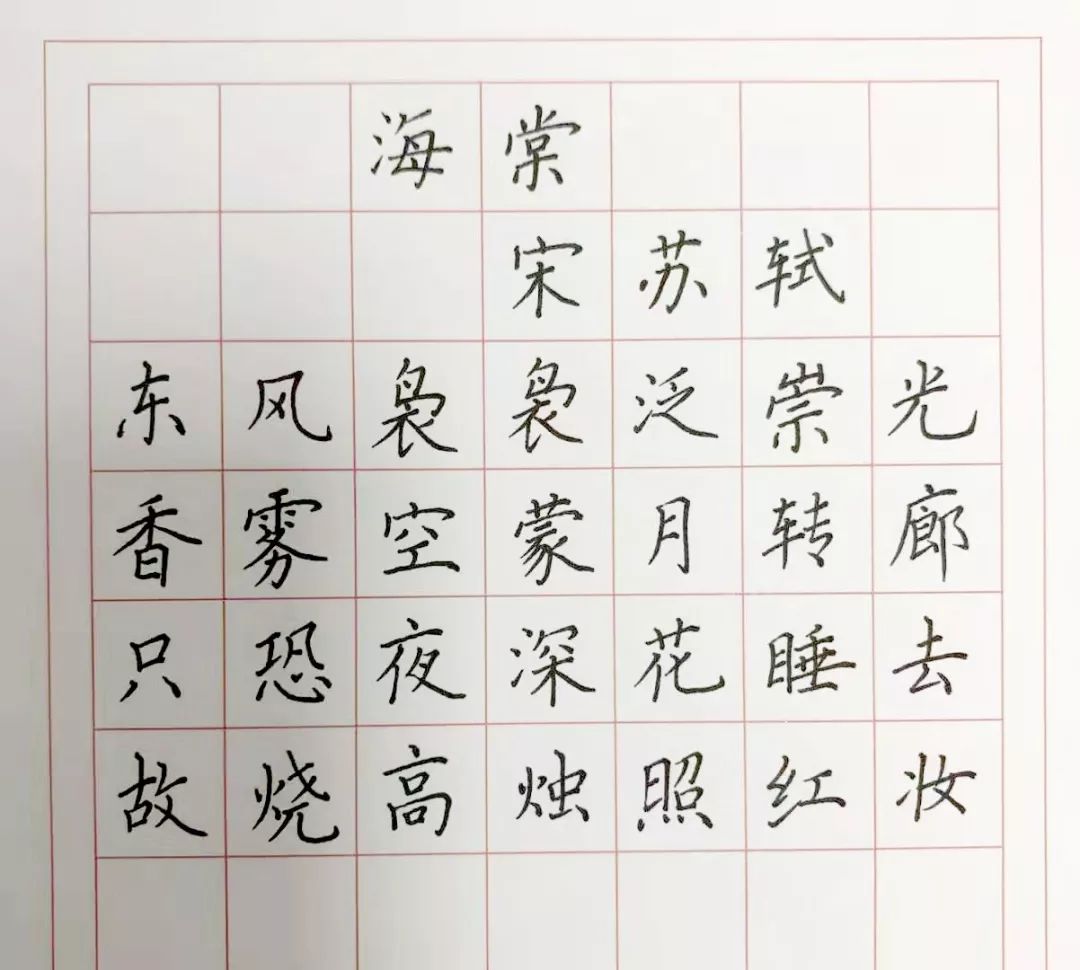 海棠
宋苏轼
东风袅袅泛崇光
香雾空蒙月转廊
只恐夜深花睡去
故烧高烛照红妆